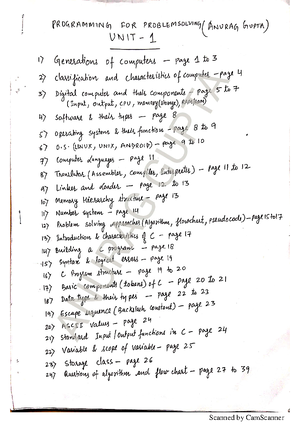 PROGRAMMING FOR PROBLEMSOLVING (ANURAG GUPTA)
UNIT - 1
1) Generations of computers - page 1 to 3
2) classification and characteristics of computer - page 4
3) Digital computer and their components - page 5 to 7
(Input, output, CPU, memory(storage),
4) Software & their types - page 8
5) Operating system & their function - page 8 to 9
6) O.S. (LINUX, UNIX, ANDROID) - page 9 to 10
7) Computer languages - page 11
8) Translator (Assembler, compiler, Interpreter) - page 11 to 12
9) Linker and Loader - page 12 to 13
10) Memory Hierarchy structure - page 13
11) Number System - page 14
12) Problem solving approaches (Algorithm, flowchart, pseudocode) - page 15 to 17
13) Introduction & characteristics of C - page 17
14) Building a C program - page 18
15) Syntax & logical errors - page 19
16) C Program structure - page 19 to 20
17) Basic components (tokens) of C - page 20 to 21
18) Data Type & their types - page 22 to 23
19) Escape sequence (Backslash constant) - page 23
20) ASCII values - page 24
21) Standard Input/Output functions in C - page 24
22) Variable & scope of variable - page 25
23) Storage class - page 26
24) Questions of algorithm and flow chart - page 27 to 39
ANURAG GUPTA
Scanned by CamScanner